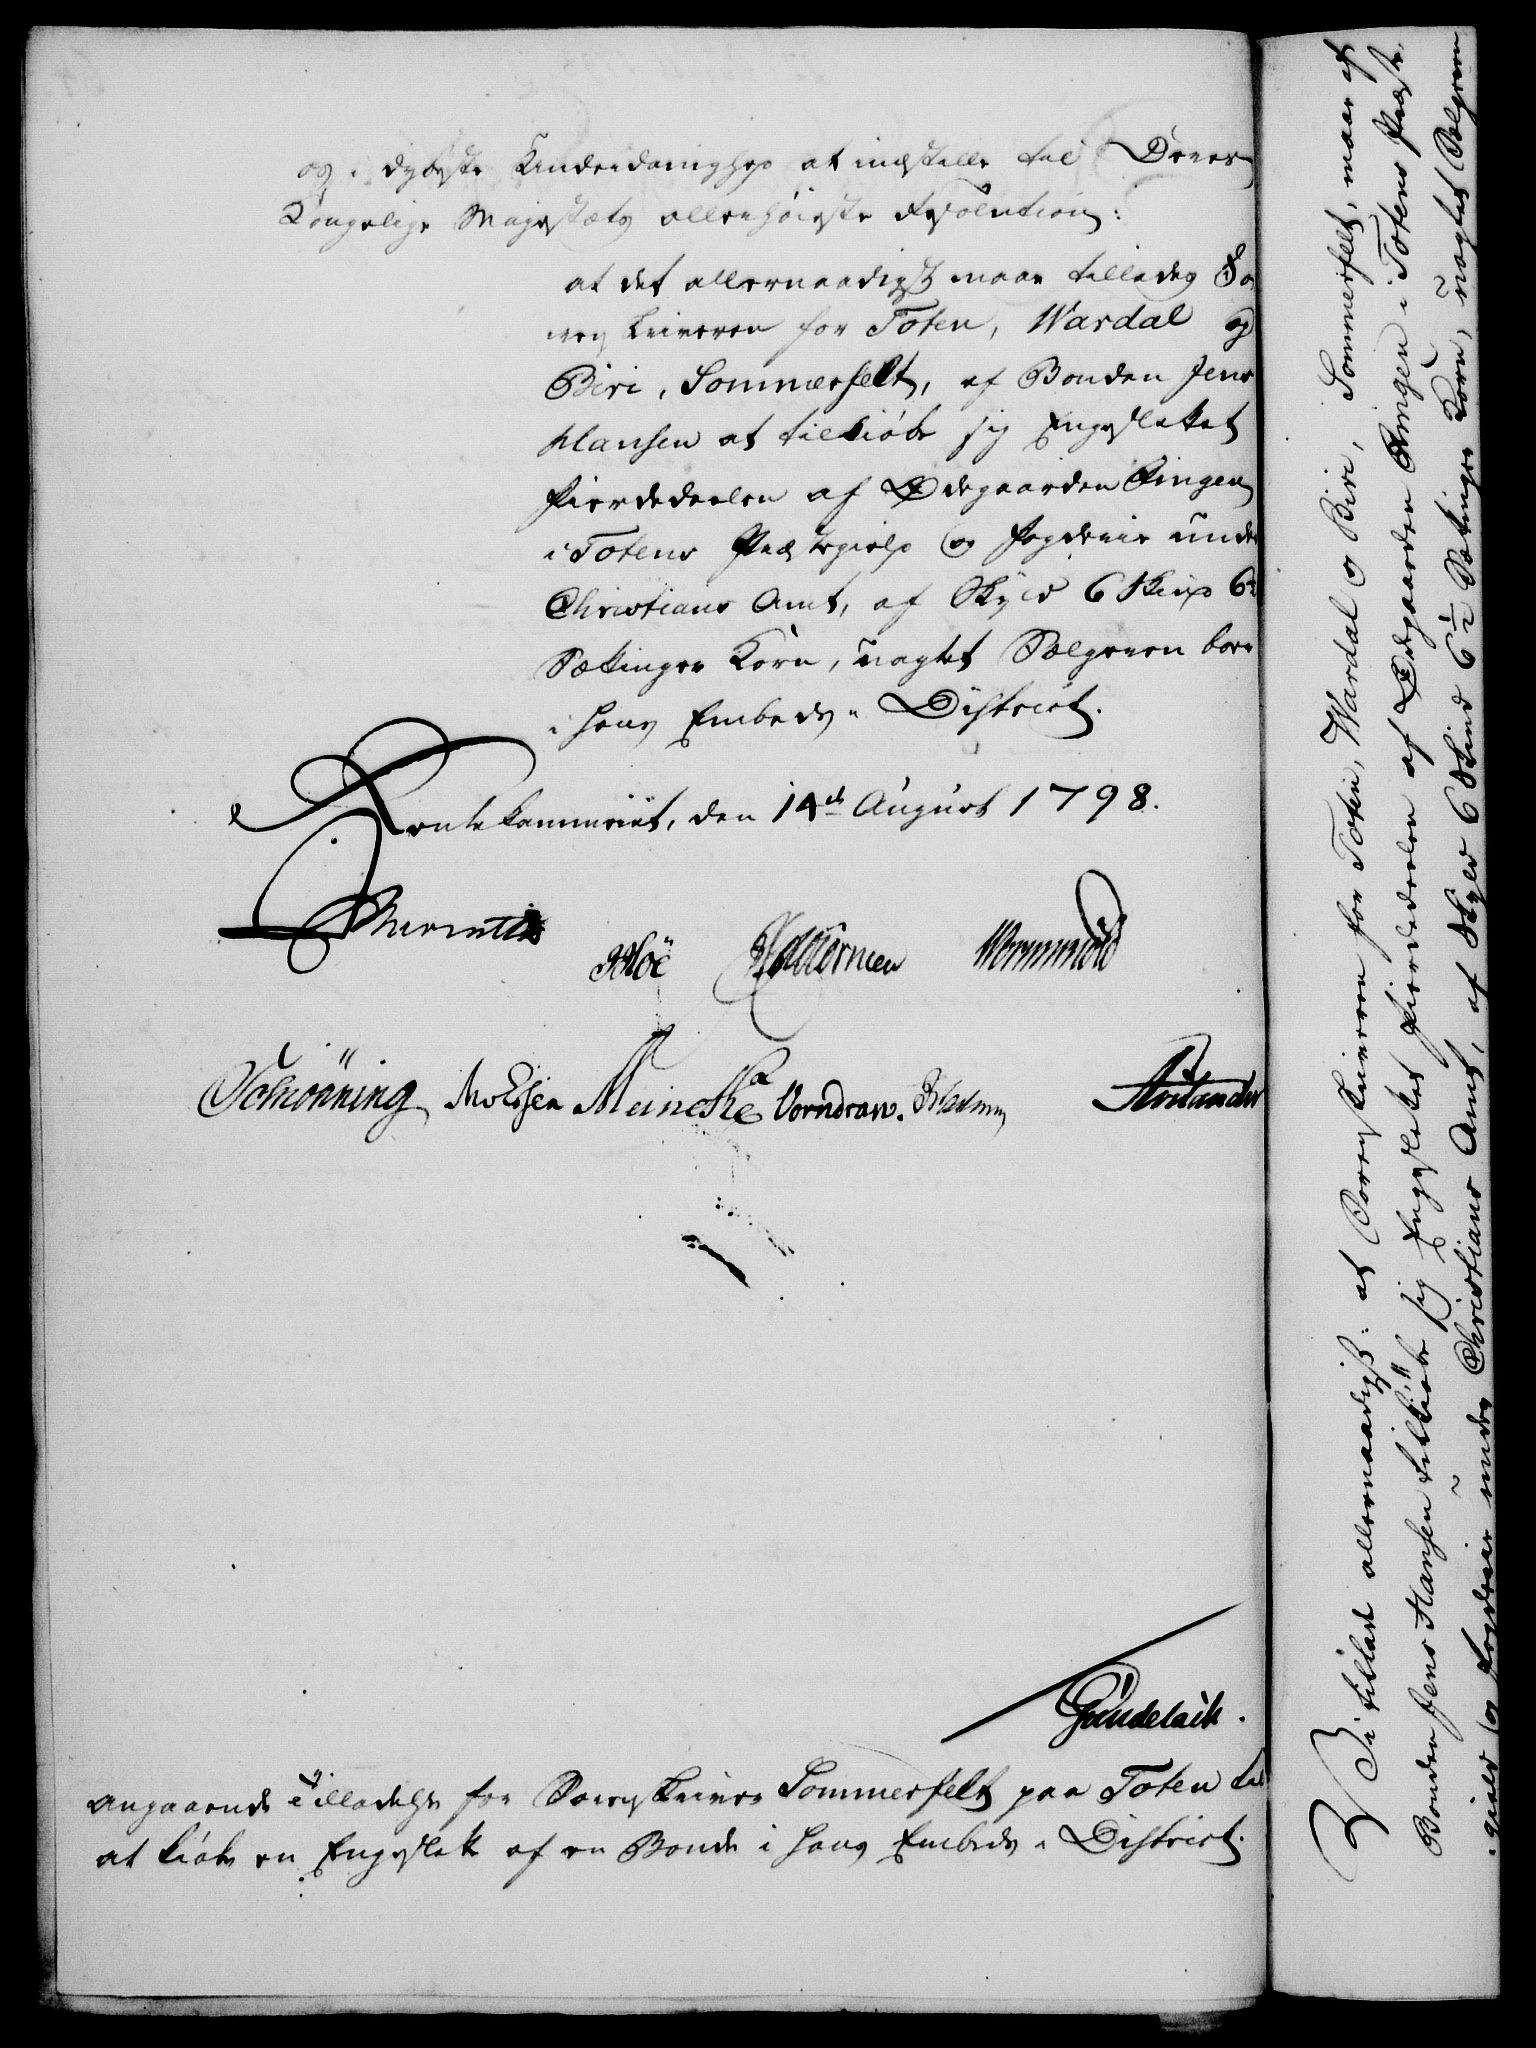 og i dybeste Underdanighed at indstille til Deres
Kongelige Majestæts allerhøieste Resolution:
at det allernaadigst maae tillades So-
renskriveren for Toten, Wardal og
Biri, Sommerfelt, af Bonden Jens
Hansen at tilkiøbe sig Engeslettet
Fierdedeelen af Ødegaarden Ringen
i Totens Præstegield og Fogderie under
Christians Amt, af Skyld 6 Skind 6½
Sættinger Korn, uagtet Sælgeren boer
i hans Embeds-District.
Rentekammeret, den 14de August 1798.
Schiönning Meincke Vorndran.
angaaende Tilladelse for Sorenskriver Sommerfelt paa Toten til
at kiøbe en Engeslet af en Bonde i hans Embeds-District.
Vi tillade allernaadigst: at Sorenskriveren for Toten, Wardal og Biri, Sommerfelt, maae af
Bonden Jens Hansen tilkiøbe sig Engeslettet Fierdedeelen af Ødegaarden Ringen i Totens Præste-
gield og Fogderie under Christians Amt, af Skyld 6 Skind 6½ Sættinger Korn, uagtet Sælgeren